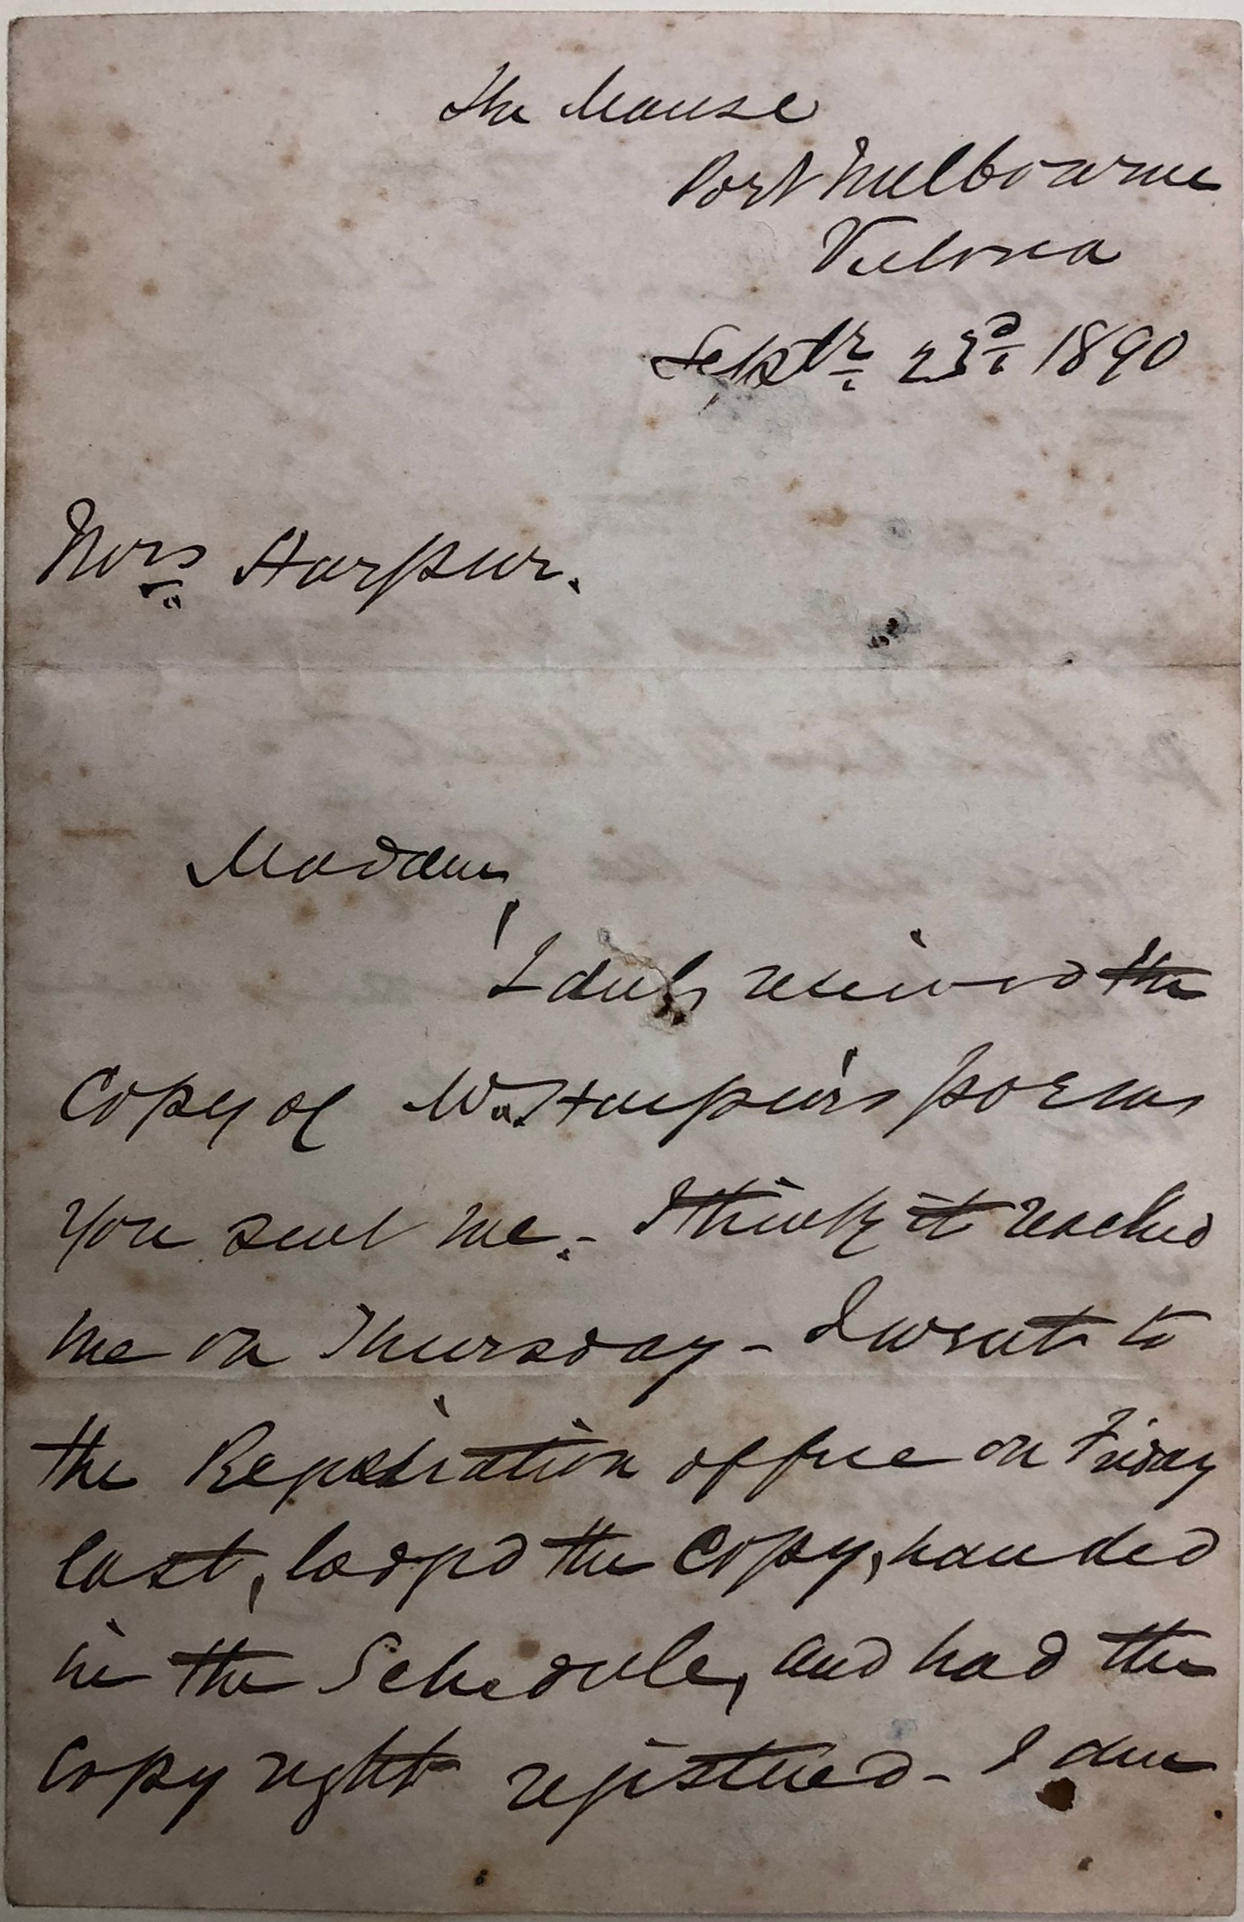 The Manse
Port Melbourne
Victoria
Septr 23d 1890
Mrs Harpur.
Madam,
I duly received the
Copy of Mr Harpur's poems
you sent me. - I think it reached
me on Thursday - I went to
the Registration office on Friday
last, lodged the Copy, handed
in the Schedule, and had the
copy right registered - I am